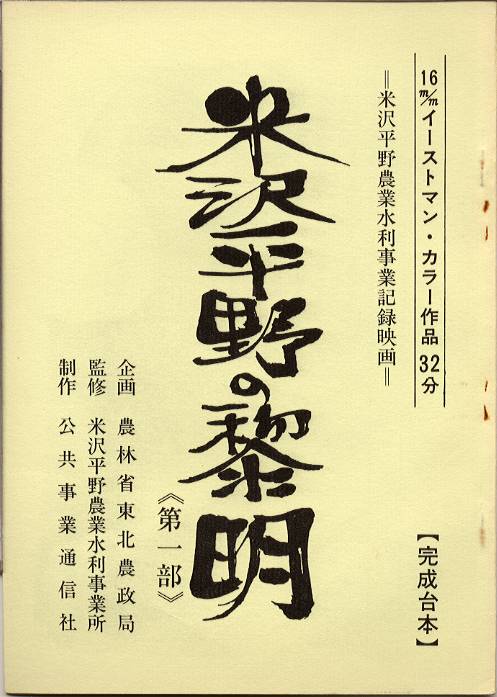 16m/mイーストマン・カラー作品 32分
＝米沢平野農業水利事業記録映画＝
【完成台本】
米沢平野の黎明
《第一部》
企画 農林省東北農政局
監修 米沢平野農業水利事業所
制作 公共事業通信社